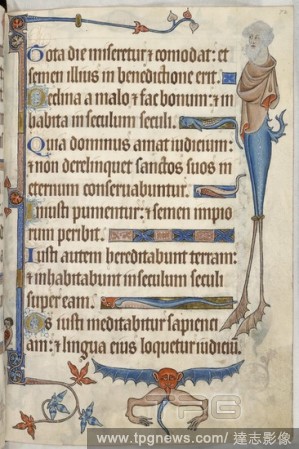 Tota die miseretur ⁊ comodat: et
semen illius in benedictione erit.
Declina a malo, ⁊ fac bonum: ⁊ in
habita in seculum seculi.
Quia dominus amat iudicium:
⁊ non derelinquet sanctos suos in
eternum conseruabuntur.
Iniusti punientur: ⁊ semen impio
rum peribit.
Iusti autem hereditabunt terram:
⁊ inhabitabunt in seculum seculi
super eam.
Os iusti meditabitur sapienci
am: ⁊ lingua eius loquetur iudiciū.
TPG
www.tpgnews.com / 達志影像